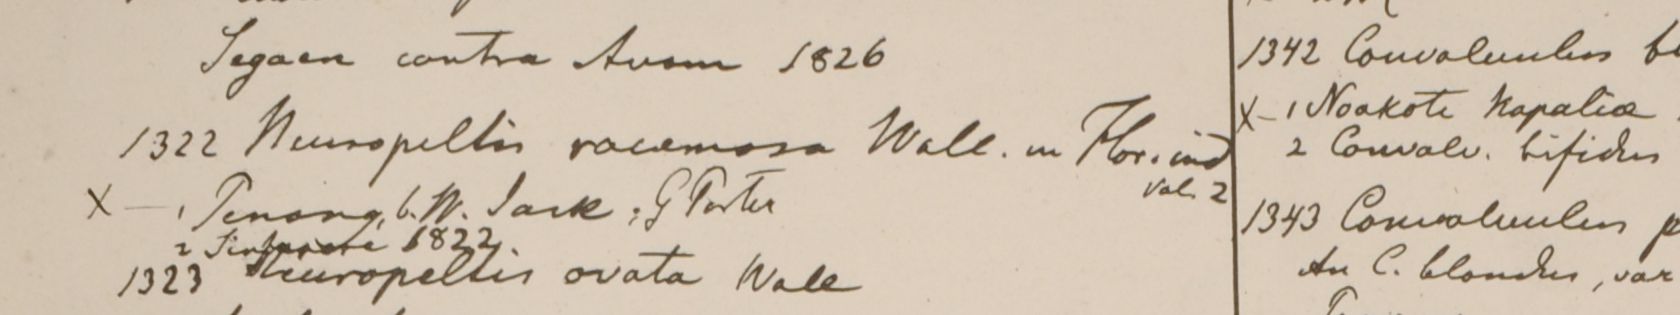 Segaen contra Avam 1826
1322 Neuropeltis racemosa Wall. in Flor. ind
vol. 2
X — 1 Penang, b. W. Jack; G Porter
2 Sintapore 1822.
1323 Neuropeltis ovata Wall
1342 Convolvulus bl
X — 1 Noakote Napaliæ
2 Convolv. bifidus
1343 Convolvulus p
An C. blandus, var